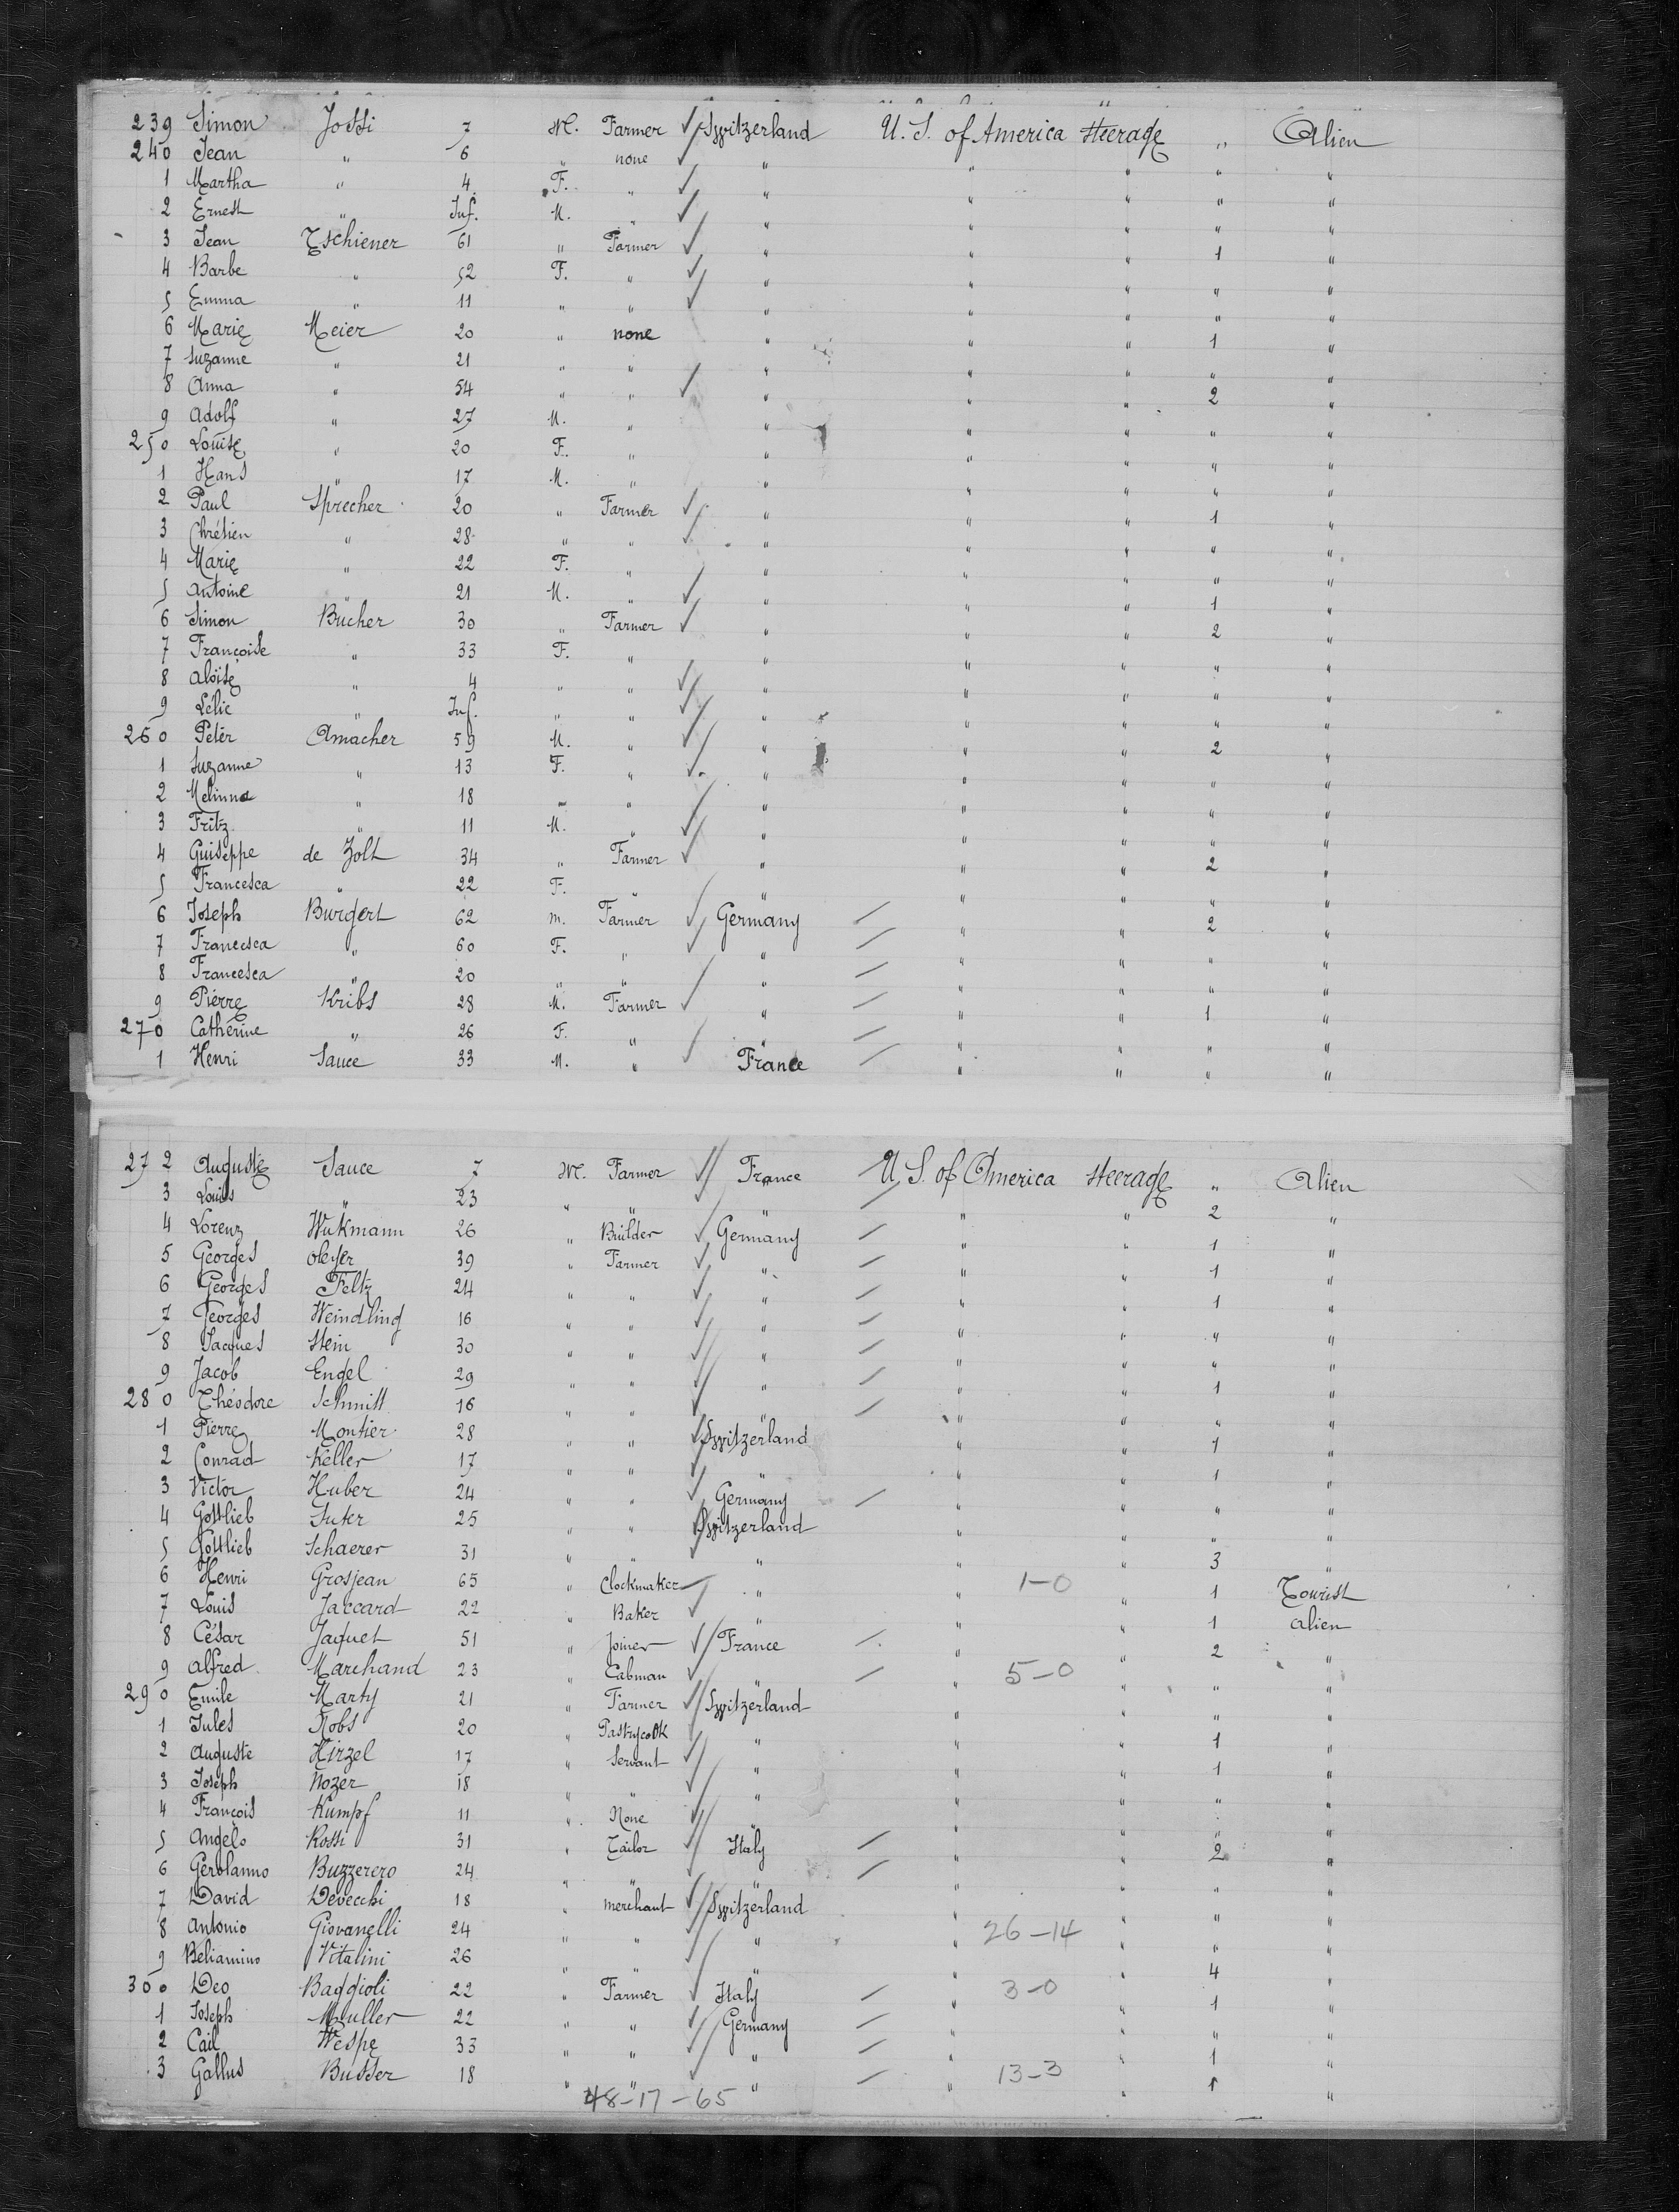 239 Simon Jossi 7 M. Farmer Switzerland U. S. of America Steerage " Alien
240 Jean " 6 " none " " " " "
1 Martha " 4 F. " " " " " "
2 Ernest " Inf. M. " " " " " "
3 Jean Tschiener 61 " Farmer " " " 1 "
4 Barbe " 52 F. " " " " " "
5 Emma " 11 " " " " " " "
6 Marie Meier 20 " none " " " 1 "
7 Suzanne " 21 " " " " " " "
8 Anna " 54 " " " " " 2 "
9 Adolf " 27 M. " " " " " "
250 Louise " 20 F. " " " " " "
1 Hans " 17 M. " " " " " "
2 Paul Sprecher 20 " Farmer " " " 1 "
3 Chrétien " 28 " " " " " " "
4 Marie " 22 F. " " " " " "
5 Antoine " 21 M. " " " " 1 "
6 Simon Bücher 30 " Farmer " " " 2 "
7 Françoise " 33 F. " " " " " "
8 Aloïse " 4 " " " " " " "
9 Lélie " Inf. " " " " " " "
260 Peter Amacher 59 M. " " " " 2 "
1 Suzanne " 13 F. " " " " " "
2 Melinna " 18 " " " " " " "
3 Fritz " 11 M. " " " " " "
4 Guiseppe de Zolt 34 " Farmer " " " 2 "
5 Francesca " 22 F. " " " " " "
6 Joseph Burgert 62 m. Farmer Germany " " 2 "
7 Francesca " 60 F. " " " " " "
8 Francesca " 20 " " " " " " "
9 Pierre Kribs 28 M. Farmer " " " 1 "
270 Catherine " 26 F. " " " " " "
1 Henri Sauce 33 M. " France " " " "
272 Auguste Sauce 7 M. Farmer France U. S. of America Steerage " Alien
3 Louis " 23 " " " " " 2 "
4 Lorenz Wukmann 26 " Builder Germany " " 1 "
5 Georges 39 " Farmer " " " 1 "
6 Georges Feltz 24 " " " " " 1 "
7 Georges Weindling 16 " " " " " " "
8 Jacques Stein 30 " " " " " " "
9 Jacob Engel 29 " " " " " 1 "
280 Théodore Schmitt 16 " " " " " " "
1 Pierre Montier 28 " " Switzerland " " 1 "
2 Conrad Keller 17 " " " " " 1 "
3 Victor Huber 24 " " Germany " " " "
4 Gottlieb Suter 25 " " Switzerland " " " "
5 Gottlieb Schaerer 31 " " " " " 3 "
6 Henri Grosjean 65 " Clockmaker " " 1-0 " 1 Tourist
7 Louis Jaccard 22 " Baker " " " 1 alien
8 César Jaquet 51 " Joiner France " " 2 "
9 Alfred Marchand 23 " Cabman " " 5-0 " " "
290 Emile Marty 21 " Farmer Switzerland " " " "
1 Jules Robs 20 " Pastrycook " " " 1 "
2 Auguste Hirzel 17 " Servant " " " 1 "
3 Joseph Nozer 18 " " " " " " "
4 François Kumpf 11 " None " " " " "
5 Angelo Rossi 31 " Tailor Italy " " 2 "
6 Gerolanno Buzzerero 24 " " " " " " "
7 David Devecchi 18 " merchant Switzerland " " " "
8 Antonio Giovanelli 24 " " " " 26-14 " " "
9 Beliamino Vitalini 26 " " " " " 4 "
300 Deo Baggioli 22 " Farmer Italy " 3-0 " 1 "
1 Joseph Muller 22 " " Germany " " " "
2 Cail Wespe 33 " " " " " 1 "
3 Gallus Busser 18 " " " " 13-3 " 1 "
48-17-65